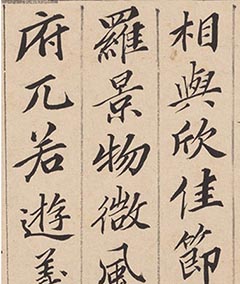 相與欣佳節
羅景物微風
府兀若遊